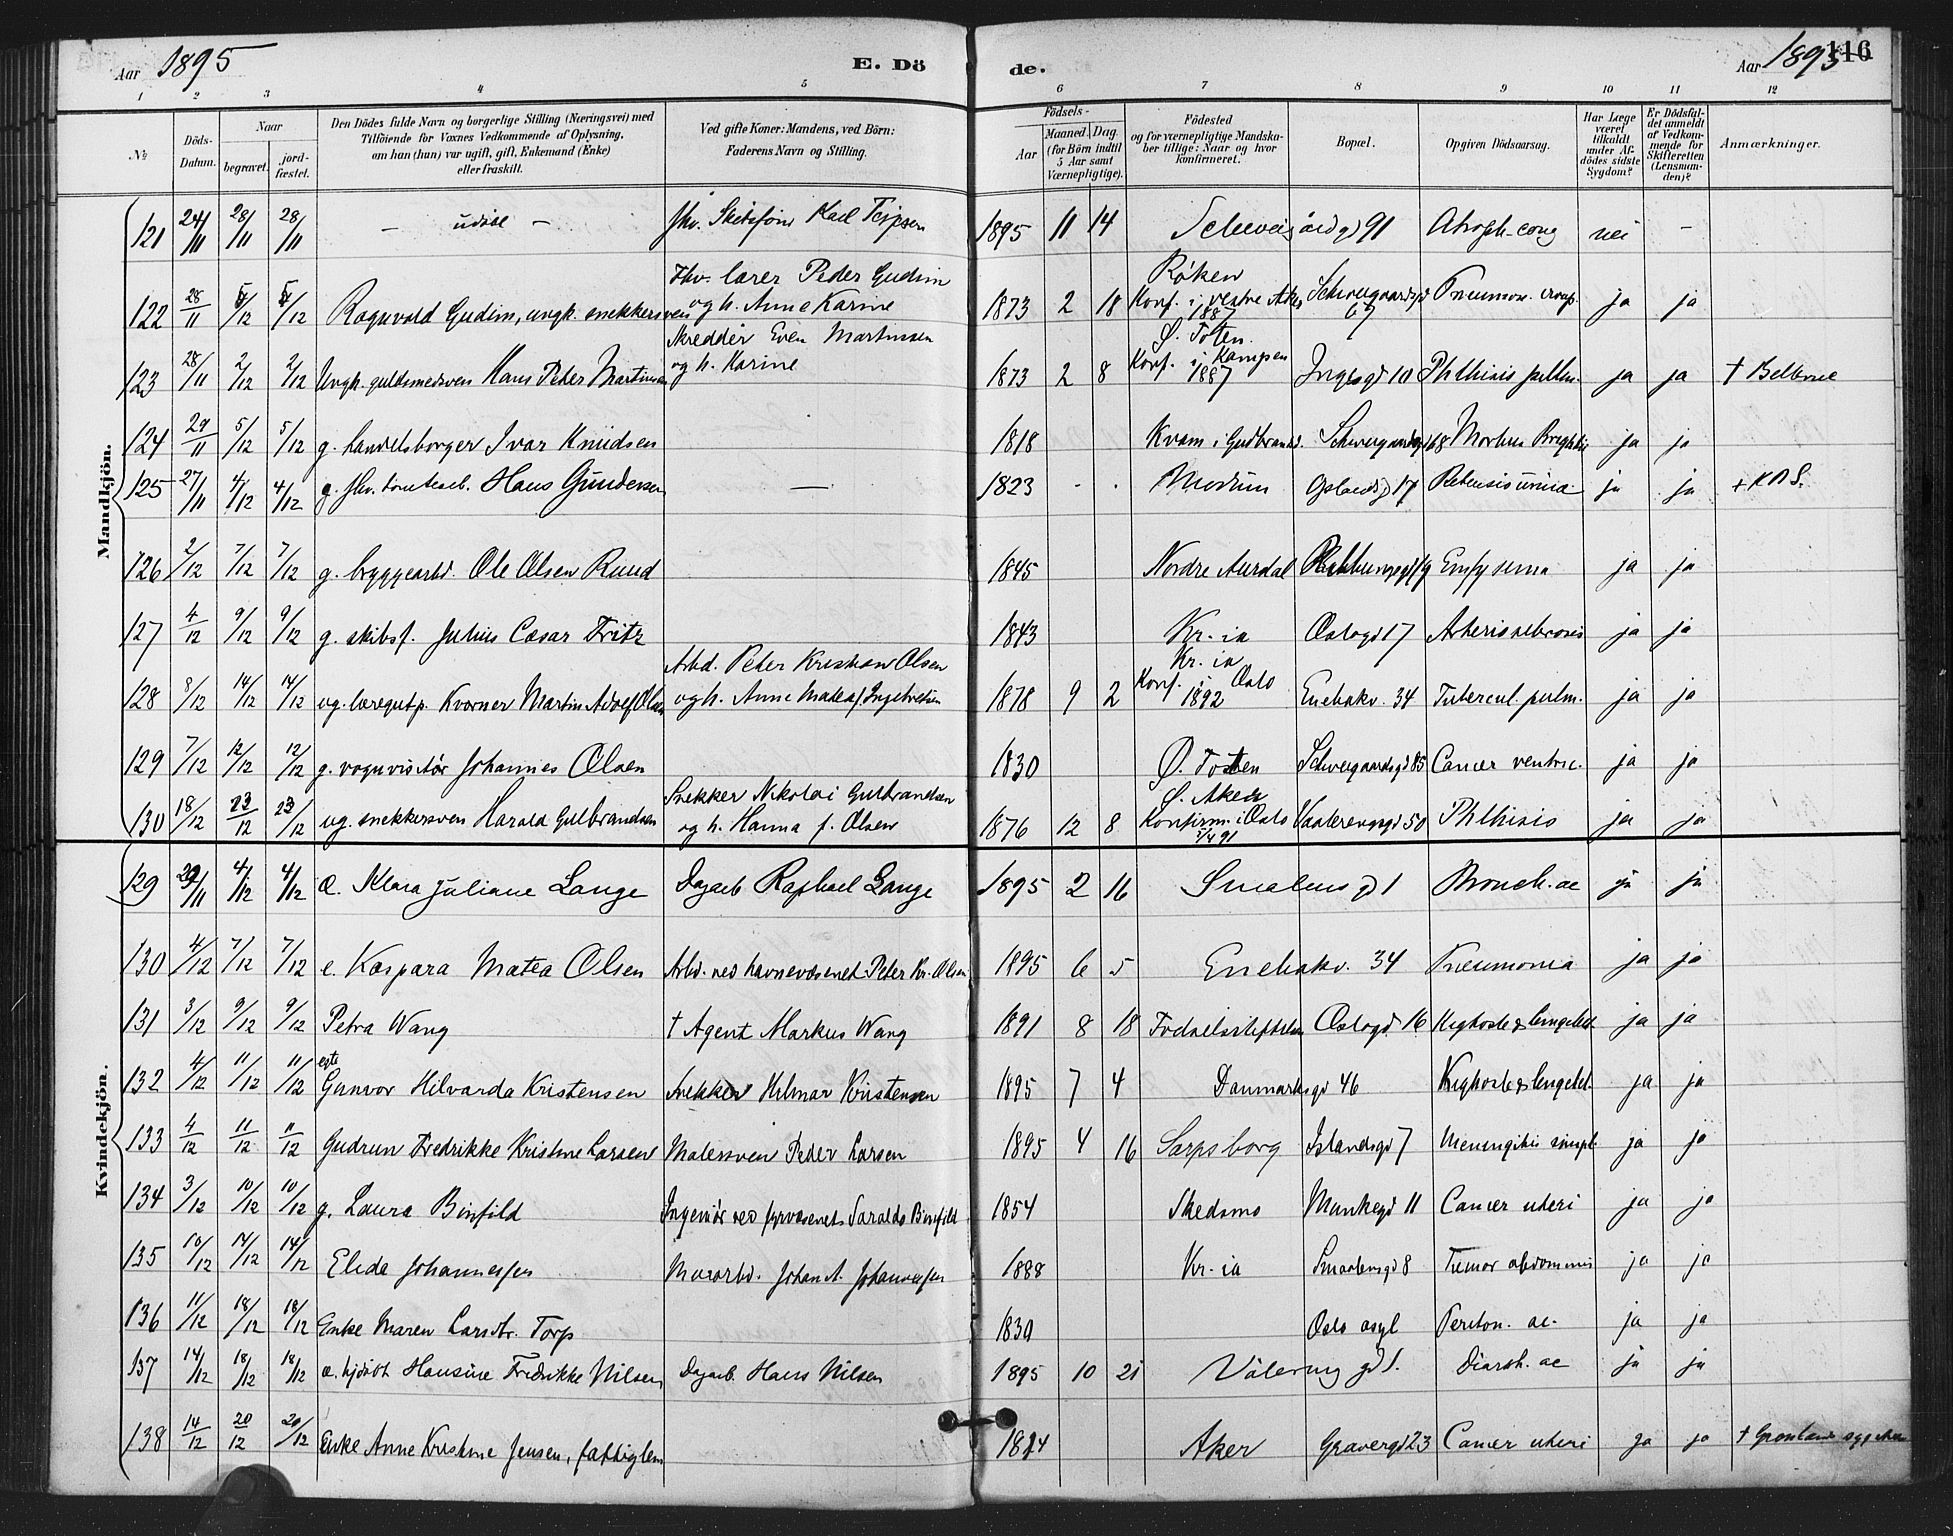 Aar 1895
E. Dö
de.
Aar 1895
116
1 2 3 4 5 6 7 8 9 10 11 12
№
Döds-Datum.
Naar
begravet.
jord-fæstet.
Den Dödes fulde Navn og borgerlige Stilling (Næringsvei) med
Tilföiende for Voxnes Vedkommende af Oplysning,
om han (hun) var ugift, gift, Enkemand (Enke)
eller fraskilt.
Ved gifte Koner: Mandens, ved Börn:
Faderens Navn og Stilling.
Födsels-
Aar
Maaned. Dag.
(for Börn indtil 5 Aar samt Værnepligtige).
Födested
og for værnepligtige Mandska-
ber tillige: Naar og hvor
konfirmeret.
Bopæl.
Opgiven Dödsaarsag.
Har Læge været tilkaldt under Af-dödes sidste Sygdom?
Er Dödsfal-det anmeldt af Vedkom-mende for Skifteretten (Lensman-den)?
Anmærkninger.
Mandkjön.
121 24/11 28/11 28/11 — udöbt — 1895 11 14 91 Atroph. cong nei —
Fhv. lærer Peder Gudim Røken
122 28/11 5/12 5/12 Ragnvald Gudim, ungk. snekkersvend og h. Anne Karine 1873 2 18 Konf. i vestre Aker 1887 Schweigaardsgd 67 Pneumon. croup. ja ja
Skredder Even Martinsen Ø. Toten.
123 28/11 2/12 2/12 Ungk. guldsmedsven Hans Peter Martinsen og h. Karine 1873 2 8 Konf. i Kampen 1887 Ingesgd 10 Phthisis pulm. ja ja †
124 29/11 5/12 5/12 g. handelsborger Ivar Knudsen 1818 Kvam i Gudbrandsd. Schweigaardsgd 68 Morbus Brightii ja ja
125 27/11 4/12 4/12 g. fhv. Hans Gundersen — 1823 - - Modum 17 Retensio urinæ ja ja †
126 2/12 7/12 7/12 g. bryggearbd. Ole Olsen Ruud 1845 Nordre Aurdal Emfysema ja ja
127 4/12 9/12 9/12 g. skibsf. Julius Cæsar Fritz 1843 Kr.ia Oslogd 17 ja ja
Arbd. Peter Kristian Olsen Kr.ia
128 8/12 14/12 14/12 ug. Kværner Martin Adolf Olsen og h. Anne Matea f. Ingebretsen 1878 9 2 Konf. i Oslo 1892 Enebakv. 34 Tubercul. pulm. ja ja
129 7/12 12/12 12/12 g. vognvisitør Johannes Olsen 1830 Ø. Toten Schweigaardsgd 85 Cancer ventric. ja ja
Snekker Nikolai Gulbrandsen Ø. Aker
130 18/12 23/12 23/12 ug. snekkersven Harald Gulbrandsen og h. Hanna f. Olsen 1876 12 8 Konfirm. i Oslo 5/4 91 Vaalerenggd 50 Phthisis ja ja
Kvindekjön.
129 29/11 4/12 4/12 æ. Klara Juliane Lange Dagarb Raphael Lange 1895 2 16 Smalensgd 1 Bronch. ac ja ja
130 4/12 7/12 7/12 e. Kaspara Matea Olsen Arbd. ved havnevæsenet Peter Kr. Olsen 1895 6 5 Enebakv. 34 Pneumonia ja ja
131 3/12 9/12 9/12 Petra Wang † Agent Markus Wang 1891 8 18 Fødselsstiftelsen Oslogd 16 Kighoste & lungebet. ja ja
132 4/12 11/12 11/12 egte Gunvor Hilvarda Kristensen Snekker Hilmar Kristensen 1895 7 4 Danmarksgd 46 Kighoste & lungebet. ja ja
133 4/12 11/12 11/12 Gudrun Fredrikke Kristine Larsen Malersven Peder Larsen 1895 4 16 Sarpsborg Islandsgd 7 Meningitis simpl. ja ja
134 3/12 10/12 10/12 g. Laura Binfild Ingeniør ved fyrvæsenets Binfild 1854 Skedsmo Munkegd 11 Cancer uteri ja ja
135 10/12 14/12 14/12 Elida Johannessen Murarbd. Johan A. Johannessen 1888 Kr.ia Smaalensgd 8 Tumor abdominis ja ja
136 11/12 18/12 18/12 Enke Maren Larsdtr. Torp 1830 Oslo asyl Periton. ac. ja ja
137 14/12 18/12 18/12 æ. hjdøbt Hansine Fredrikke Nilsen Dagarb. Hans Nilsen 1895 10 21 Vålerenggd 1. Diarrh. ac ja ja
138 14/12 20/12 20/12 Enke Anne Kristine Jensen, fattiglem 1824 Aker Gravergd 23 Cancer uteri ja ja † Grønlands sygehus